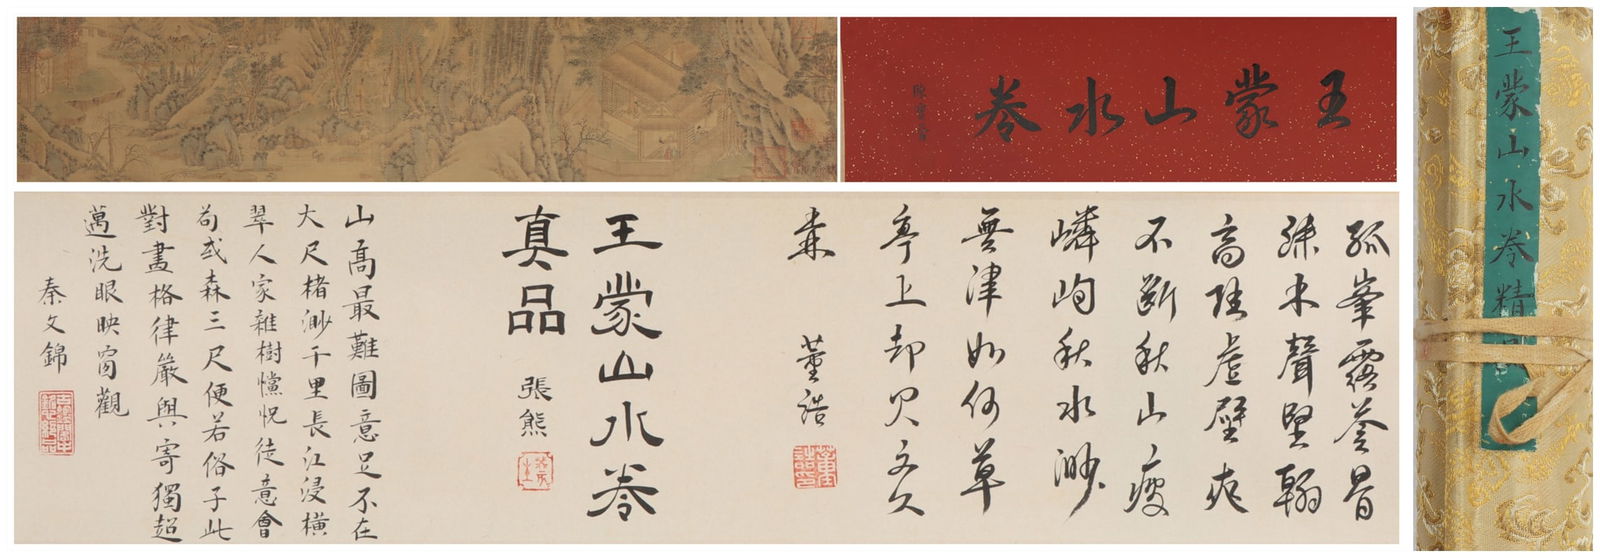 王蒙山水卷
孤峯露苍骨
殊木聲堅翰
高陸虚壁爽
不斷秋山瘦
嶙峋秋水渺
無津如何草
亭上却欠文人
来
董誥
王蒙山水卷
真品
張熊
山高最難圖意足不在
大尺楮渺千里長江浸橫
翠人家雜樹懭怳徒意會
苟或森三尺便若俗子此
對畫格律嚴與寄獨超
邁洗眼映窗觀
秦文錦
王蒙山水卷精品